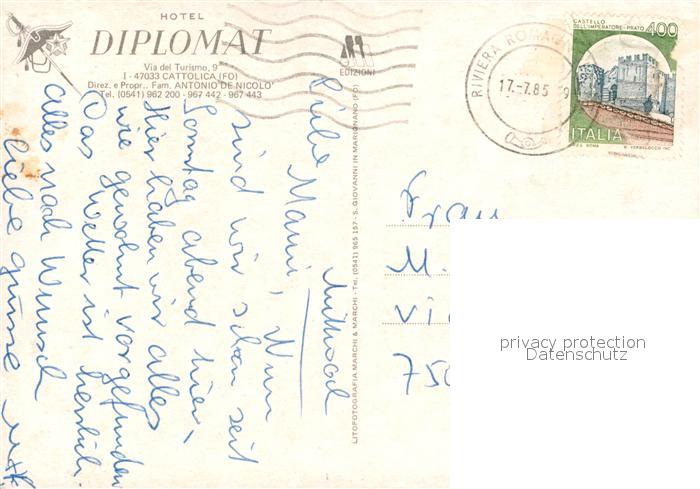 HOTEL
DIPLOMAT
Via del Turismo, 9
I - 47033 CATTOLICA (FO)
Direz. e Propr.. Fam. ANTONIO DE NICOLO'
Tel. (0541) 962 200 - 967 442 - 967 443
EDIZIONI
RIVIERA ROMAG
17.-7.85
CASTELLO
DELL'IMPERATORE-PRATO
400
ITALIA
Mittwoch
Liebe Mami, Nun
sind wir schon seit
Sonntag abend hier,
Hier haben wir alles
wie gewohnt vorgefunden
Das Wetter ist herrlich.
alles nach Wunsch
liebe grüsse
LITOFOTOGRAFIA MARCHI & MARCHI - Tel. (0541) 965 157 - S. GIOVANNI IN MARIGNANO (FO)
Frau
M.
Vi
750
privacy protection
Datenschutz